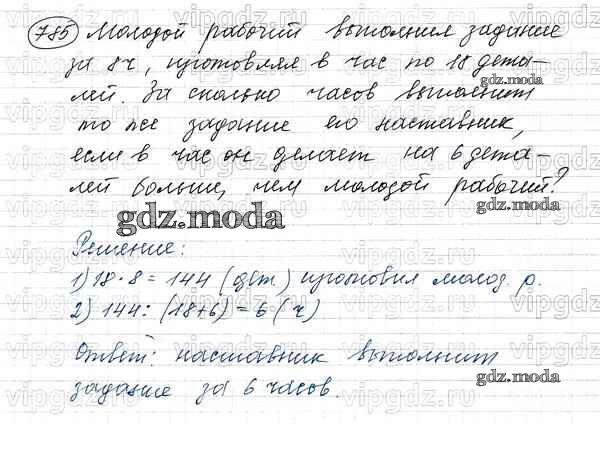 785 Молодой рабочий выполнил задание
за 8ч, изготовляя в час по 18 дета-
лей. За сколько часов выполнит
то же задание его наставник,
если в час он делает на 6 дета-
лей больше, чем молодой рабочий?
gdz.moda
Решение:
1) 18 · 8 = 144 (дет.) изготовил молод. р.
2) 144 : (18+6) = 6 (ч)
Ответ: наставник выполнит
задание за 6 часов.
gdz.moda